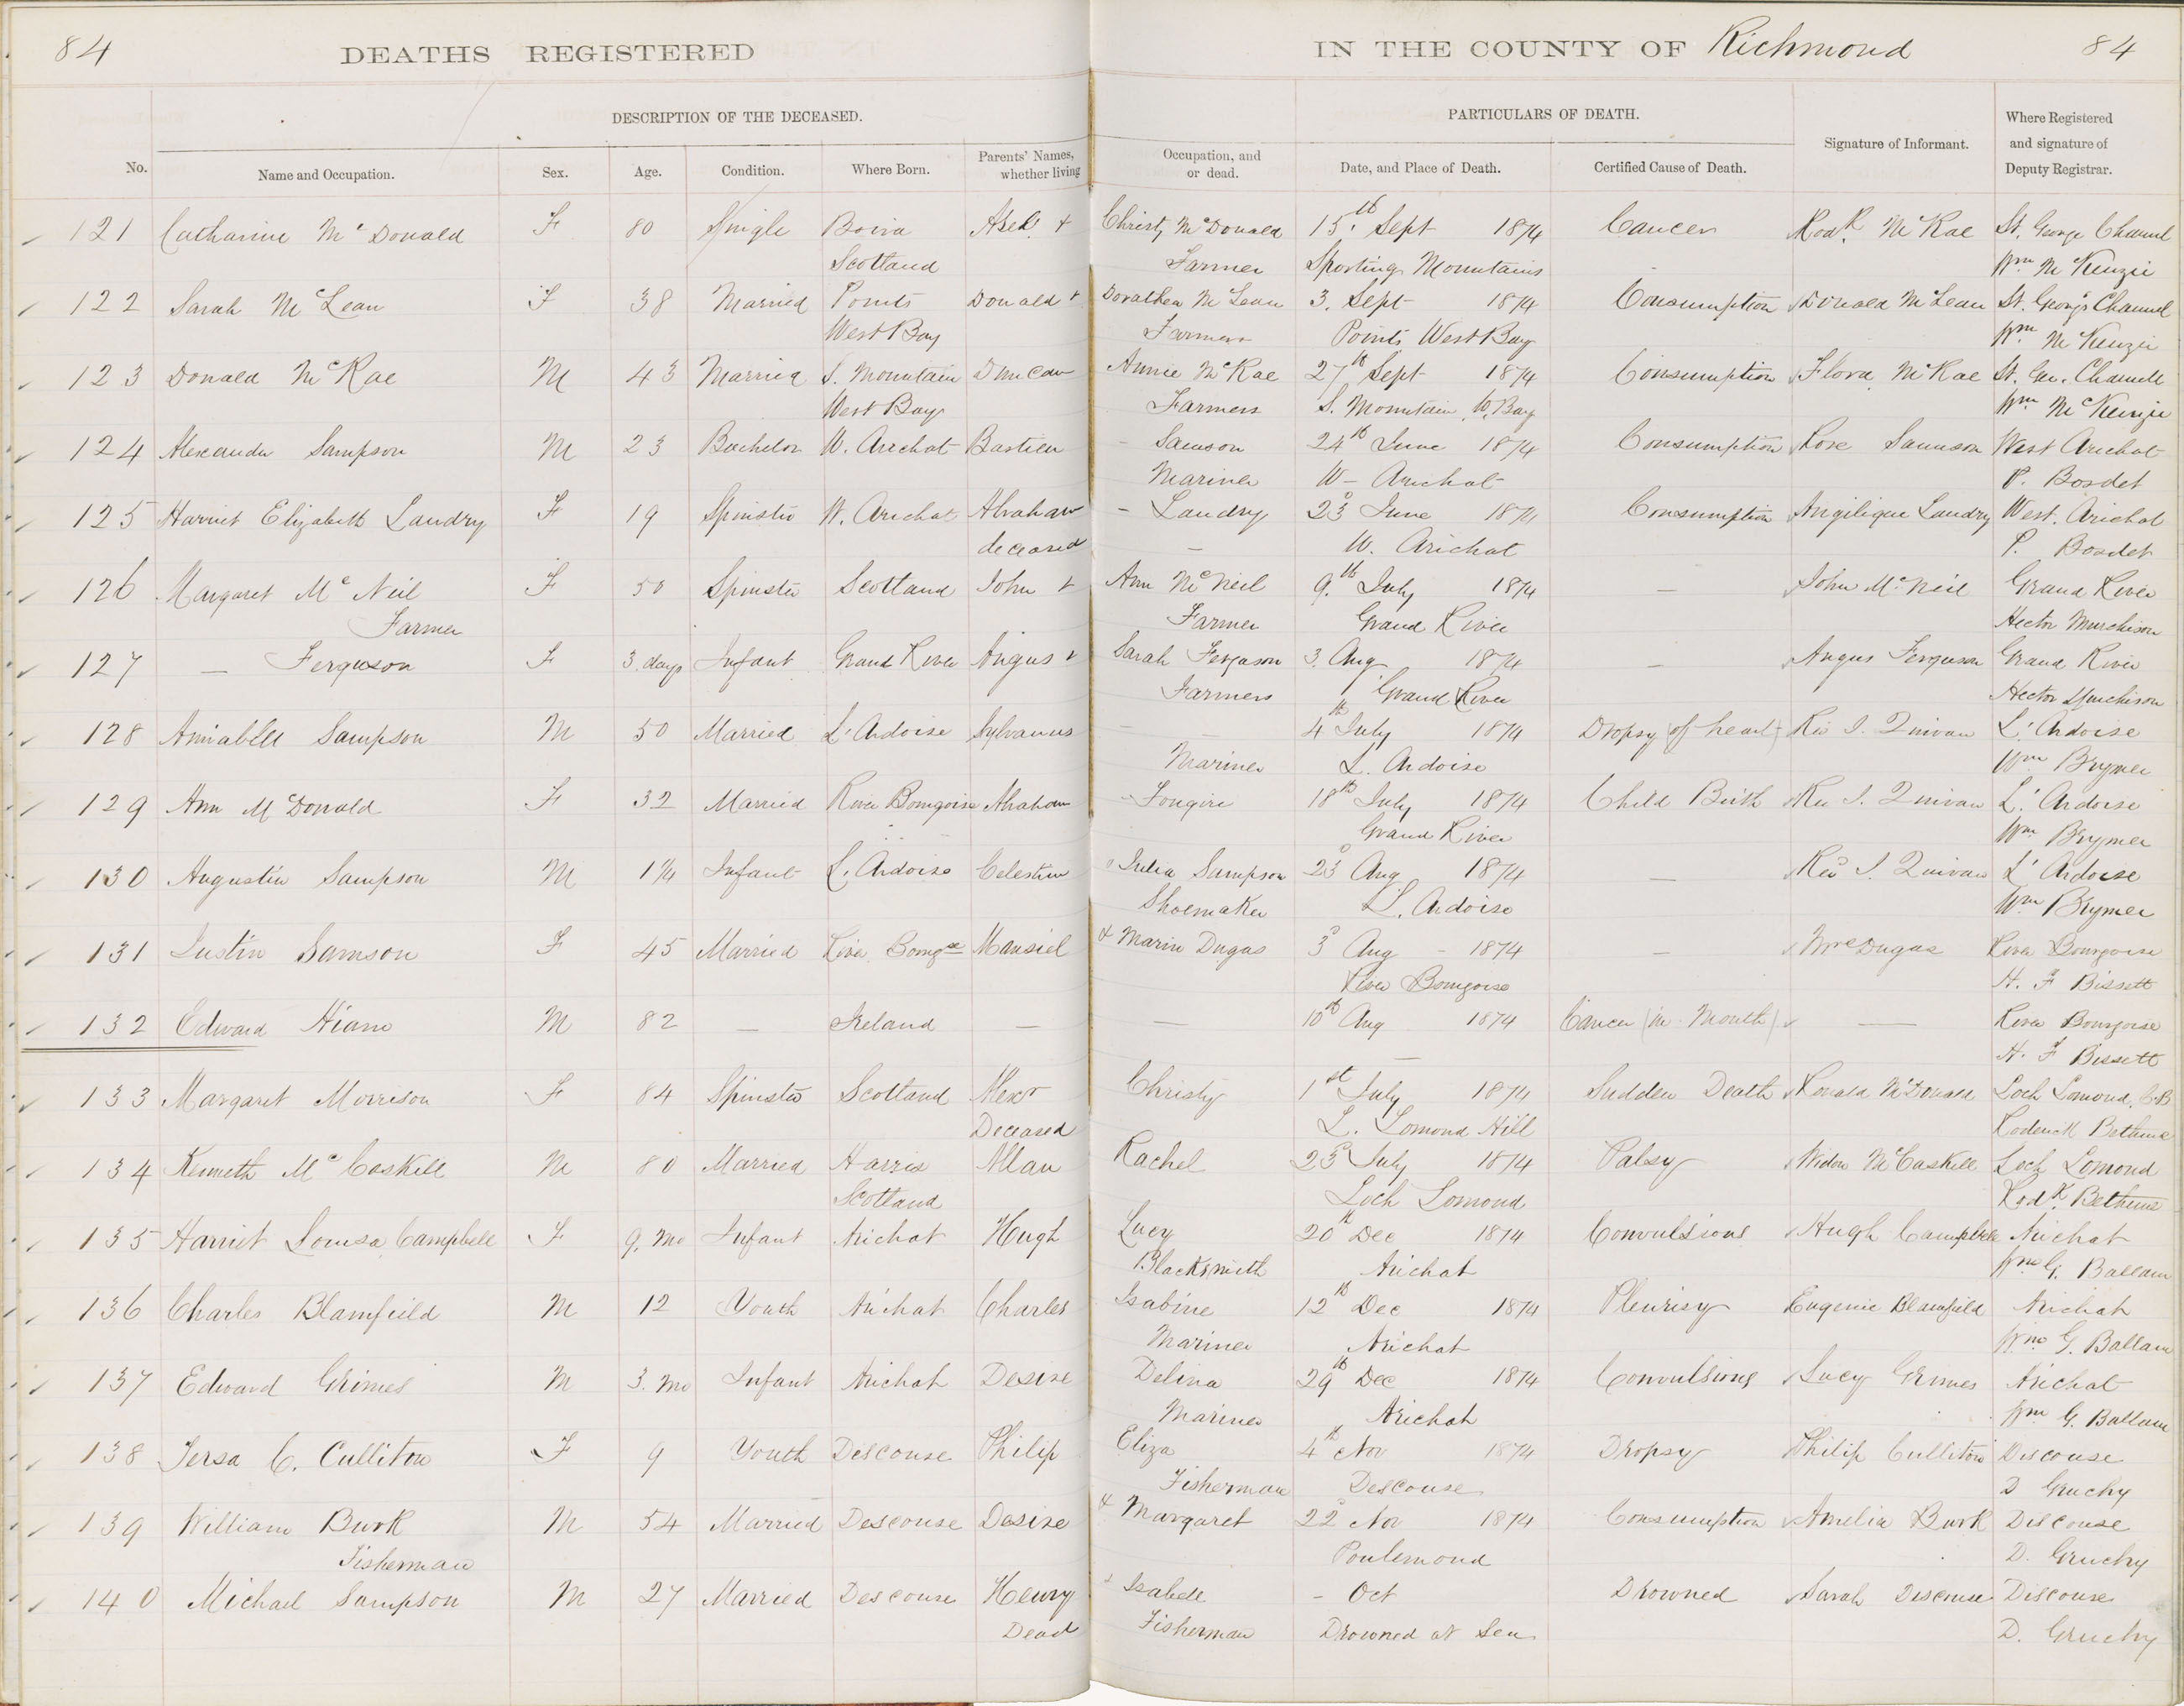 84 DEATHS REGISTERED IN THE COUNTY OF Richmond 84
DESCRIPTION OF THE DECEASED. PARTICULARS OF DEATH.
No. Name and Occupation. Sex. Age. Condition. Where Born. Parents' Names, whether living Occupation, and or dead. Date, and Place of Death. Certified Cause of Death. Signature of Informant. Where Registered and signature of Deputy Registrar.
121 Catharine McDonald F 80 Single + Christy McDonald 15th Sept 1874 Cancer McRae St. George Channel
Scotland Farmer Sporting Mountains Wm McKenzie
122 Sarah McLean F 38 Married Points Donald + Dorathea McLean 3. Sept 1874 Consumption Donald McLean St. George Channel
West Bay Farmer Points West Bay Wm McKenzie
123 Donald McRae M 43 Married S. Mountain Duncan Annie McRae 27th Sept 1874 Consumption Flora McRae St. Geo. Channel
West Bay Farmers S. Mountain W. Bay Wm McKenzie
124 Alexander Sampson M 23 Bachelor W. Arichat Bastien - Samson 24th June 1874 Consumption Rose Samson West Arichat
Mariner W - Arichat P. Bosdet
125 Harriet Elizabeth Landry F 19 Spinster W. Arichat Abraham - Landry 23d June 1874 Consumption Angilique Landry West. Arichat
deceased — W. Arichat P. Bosdet
126 Margaret McNeil F 50 Spinster Scotland John + Ann McNeil 9th July 1874 — John McNeil Grand River
Farmer Farmer Grand River Hector Murchison
127 — Ferguson F 3. days Infant Grand River Angus + Sarah Ferguson 3. Aug 1874 — Angus Ferguson Grand River
Farmers Grand River Hector Murchison
128 Amiable Sampson M 50 Married L'Ardoise Sylvanus — 4th July 1874 Dropsy (of heart) Rev J. Quinan L'Ardoise
Mariner L. Ardoise Wm Brymer
129 Ann McDonald F 32 Married River Bourgoise Abraham - Fougire 18th July 1874 Child Birth Rev J. Quinan L'Ardoise
Grand River Wm Brymer
130 Augustin Sampson M 1¼ Infant L. Ardoise Celestin Julia Sampson 23d Aug 1874 — Rev J. Quinan L'Ardoise
Shoemaker L. Ardoise Wm Brymer
131 Justin Samson F 45 Married River Bourgse Mansiel & Marin Dugas 3d Aug - 1874 — Dugas River Bourgoise
River Bourgoise H. F Bissett
132 Edward M 82 — Ireland — — 10th Aug 1874 Cancer (in Mouth) — River Bourgoise
— H. F Bissett
133 Margaret Morrison F 84 Spinster Scotland Alexr Christy 1st July 1874 Sudden Death Ronald McDonald Loch Lomond, C.B
Deceased L. Lomond Hill Roderick Bethune
134 Kenneth McCaskill M 80 Married Harris Allan Rachel 23d July 1874 Palsy Widow McCaskill Loch Lomond
Scotland Loch Lomond Rodk Bethune
135 Harriet Louisa Campbell F 9. Mo Infant Arichat Hugh Lucy 20th Dec 1874 Convulsions Hugh Campbell Arichat
Blacksmith Arichat Wm G. Ballam
136 Charles Blamfield M 12 Youth Arichat Charles Isabine 12th Dec 1874 Pleurisy Eugenie Blamfield Arichat
Mariner Arichat Wm G. Ballam
137 Edward Grimes M 3. Mo Infant Arichat Desire Delina 29th Dec 1874 Convulsions Lucy Grimes Arichat
Mariner Arichat Wm G. Ballam
138 Tersa C. Culliton F 9 Youth Descouse Philip Eliza 4th Nov 1874 Dropsy Philip Culliton Descouse
Fisherman Descouse D Gruchy
139 William Burk M 54 Married Descouse Desire & Margaret 22d Nov 1874 Consumption Amelia Burk Descouse
Fisherman Poulemond D. Gruchy
140 Michael Sampson M 27 Married Descouse Henry + Isabele - Oct Drowned Sarah Descouse Descouse
Dead Fisherman Drowned at Sea D. Gruchy